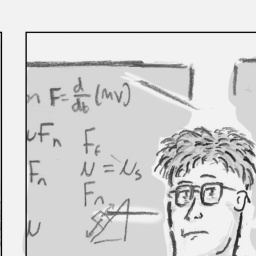 n F = d/dt (mv)
uFn Ff
Fn u = us
Fn
u